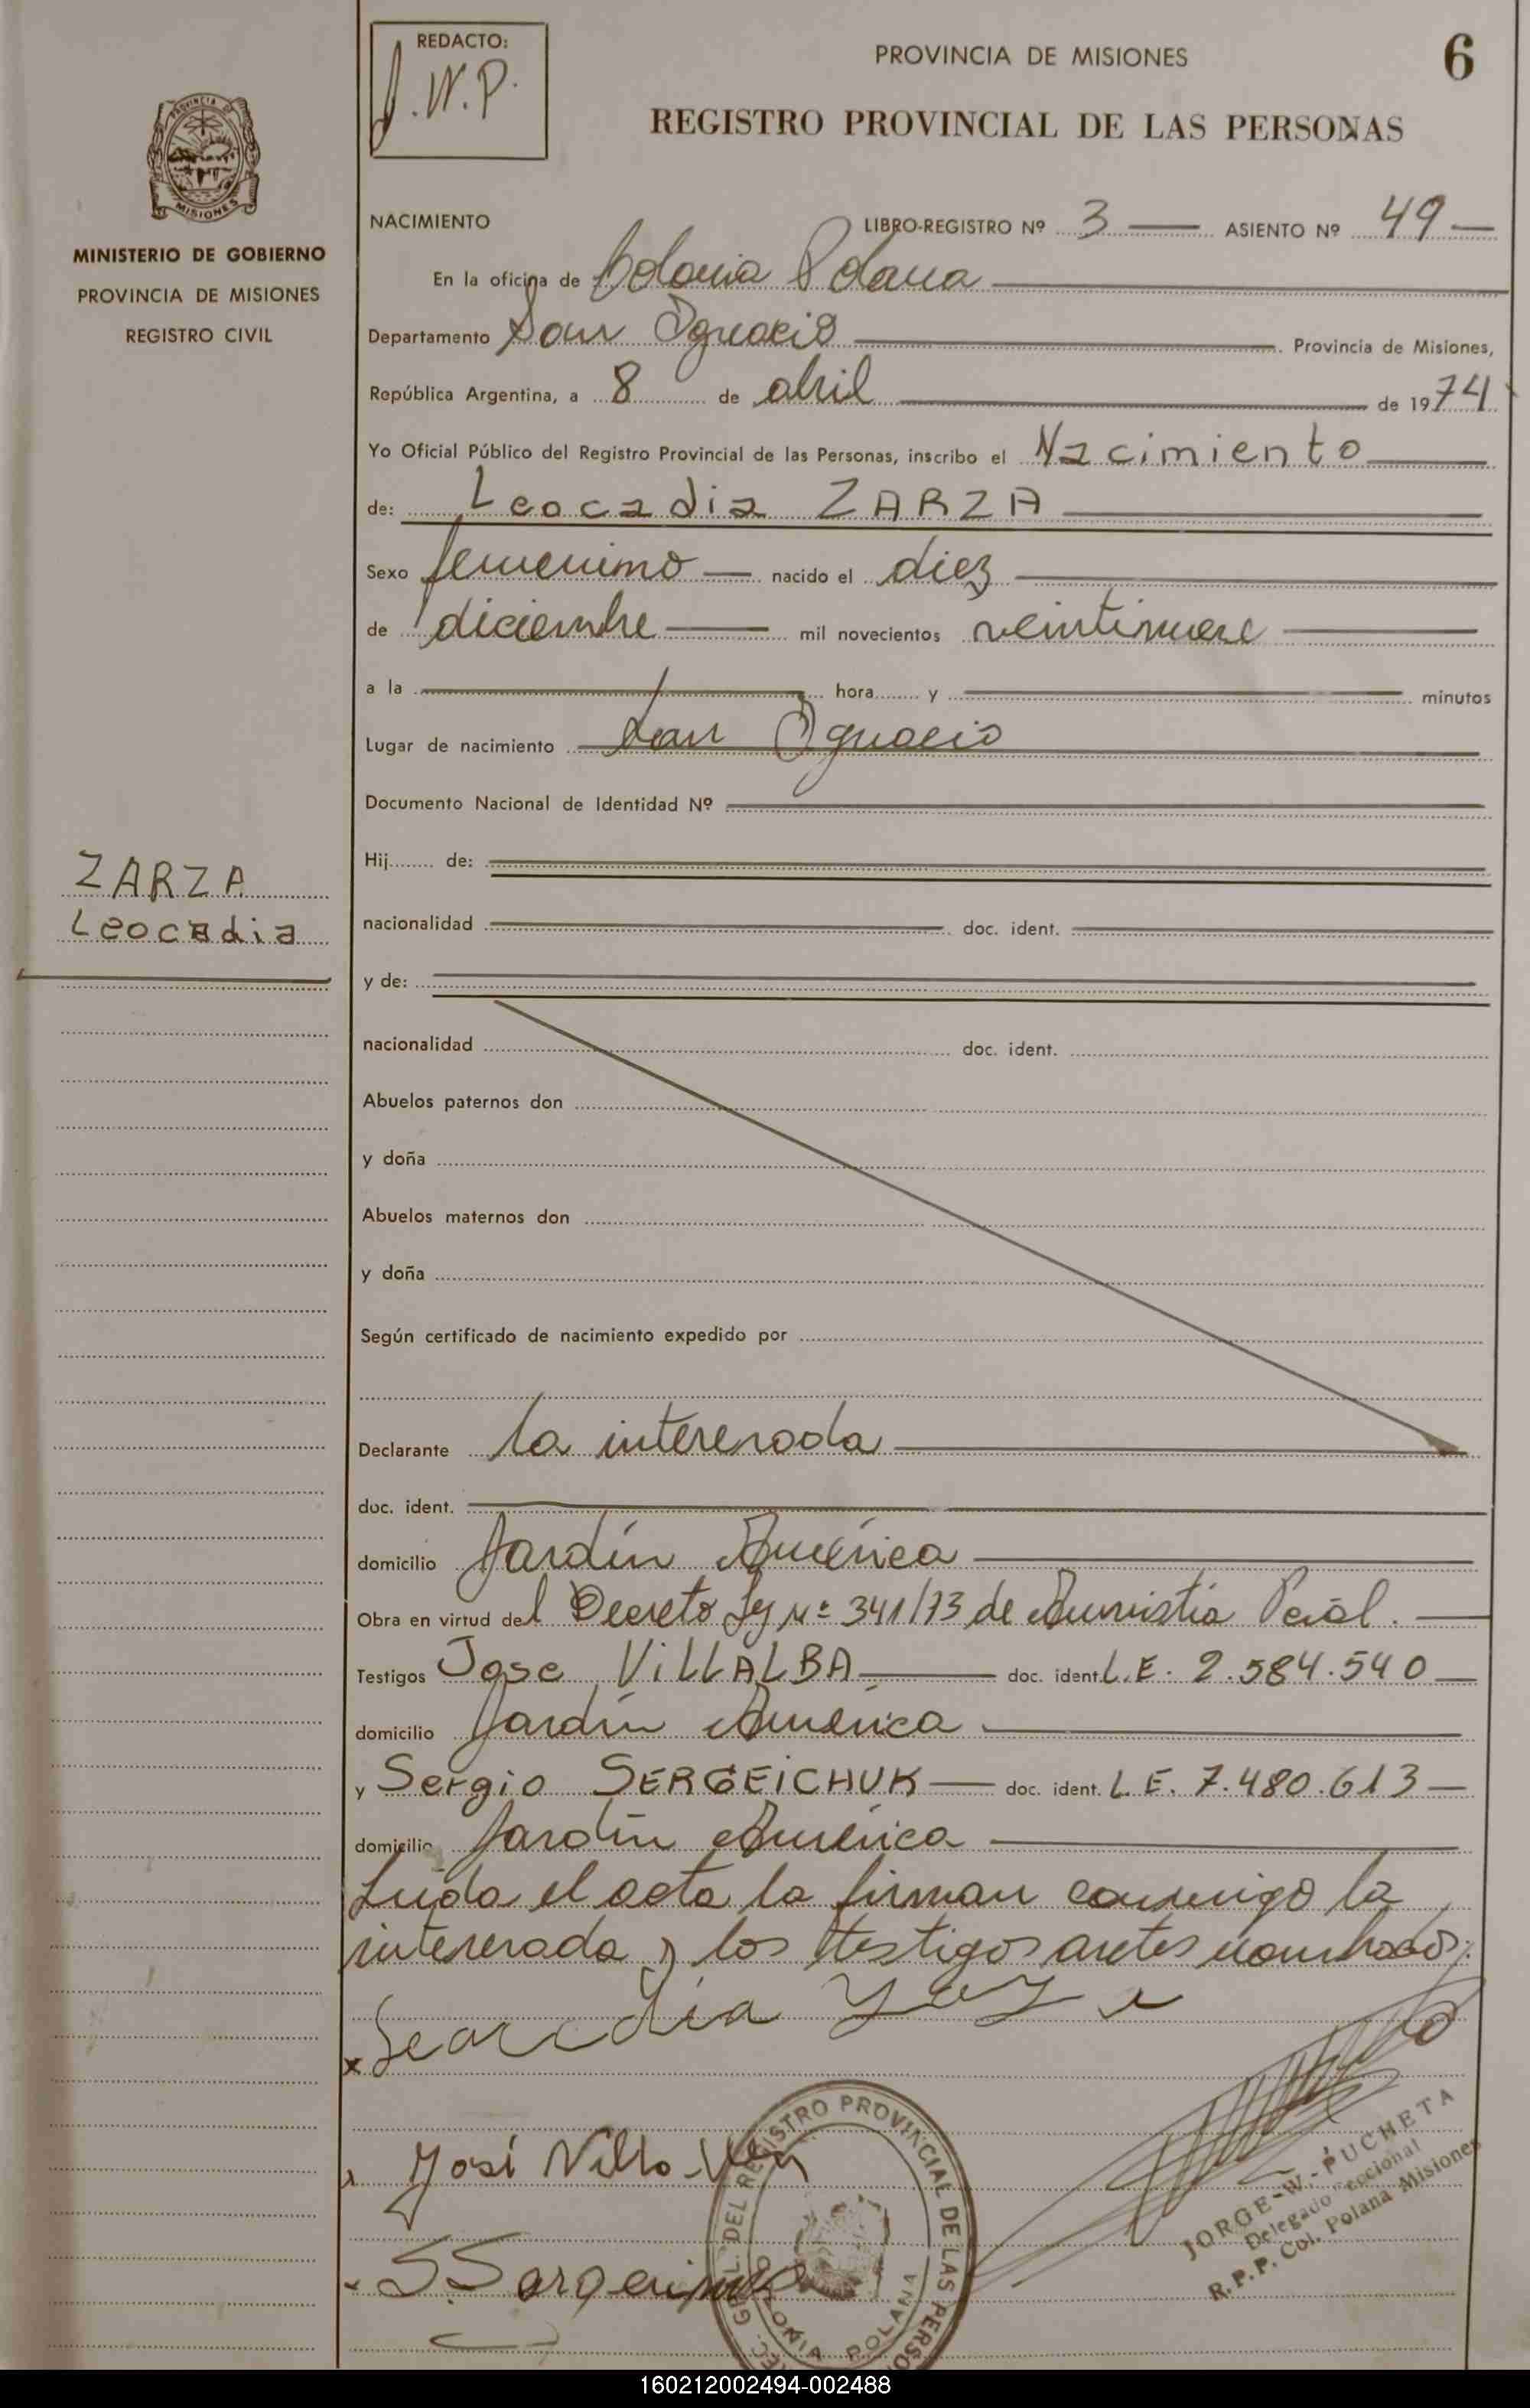 REDACTO:
J.W.P.
PROVINCIA DE MISIONES
6
REGISTRO PROVINCIAL DE LAS PERSONAS
MISIONES
MINISTERIO DE GOBIERNO
PROVINCIA DE MISIONES
REGISTRO CIVIL
NACIMIENTO LIBRO-REGISTRO Nº 3 ASIENTO Nº 49
En la oficina de Colonia Polana
Departamento San Ignacio Provincia de Misiones,
República Argentina, a 8 de abril de 1974
Yo Oficial Público del Registro Provincial de las Personas, inscribo el Nacimiento
de: Leocadia ZARZA
Sexo femenino nacido el diez
de diciembre mil novecientos veintinueve
a la hora y minutos
Lugar de nacimiento San Ignacio
Documento Nacional de Identidad Nº
ZARZA
Leocadia
Hij de:
nacionalidad doc. ident.
y de:
nacionalidad doc. ident.
Abuelos paternos don
y doña
Abuelos maternos don
y doña
Según certificado de nacimiento expedido por
Declarante la interesada
doc. ident.
domicilio Jardín América
Obra en virtud del Decreto Ley Nº 341/73 de Amnistia Penal.
Testigos Jose VILLALBA doc. ident. L.E. 2.584.540
domicilio Jardín América
y Sergio SERGEICHUK doc. ident. L.E. 7.480.613
domicilio Jardín América
Leida el acta la firman conmigo la
interesada y los testigos antes nombrados.
x Learcdia
José Villa
JORGE-W.-PUCHETA
Delegado Seccional
R.P.P. Col. Polana Misiones
DEL REGISTRO PROVINCIAL DE LAS PERSO
COLONIA POLANA
160212002494-002488